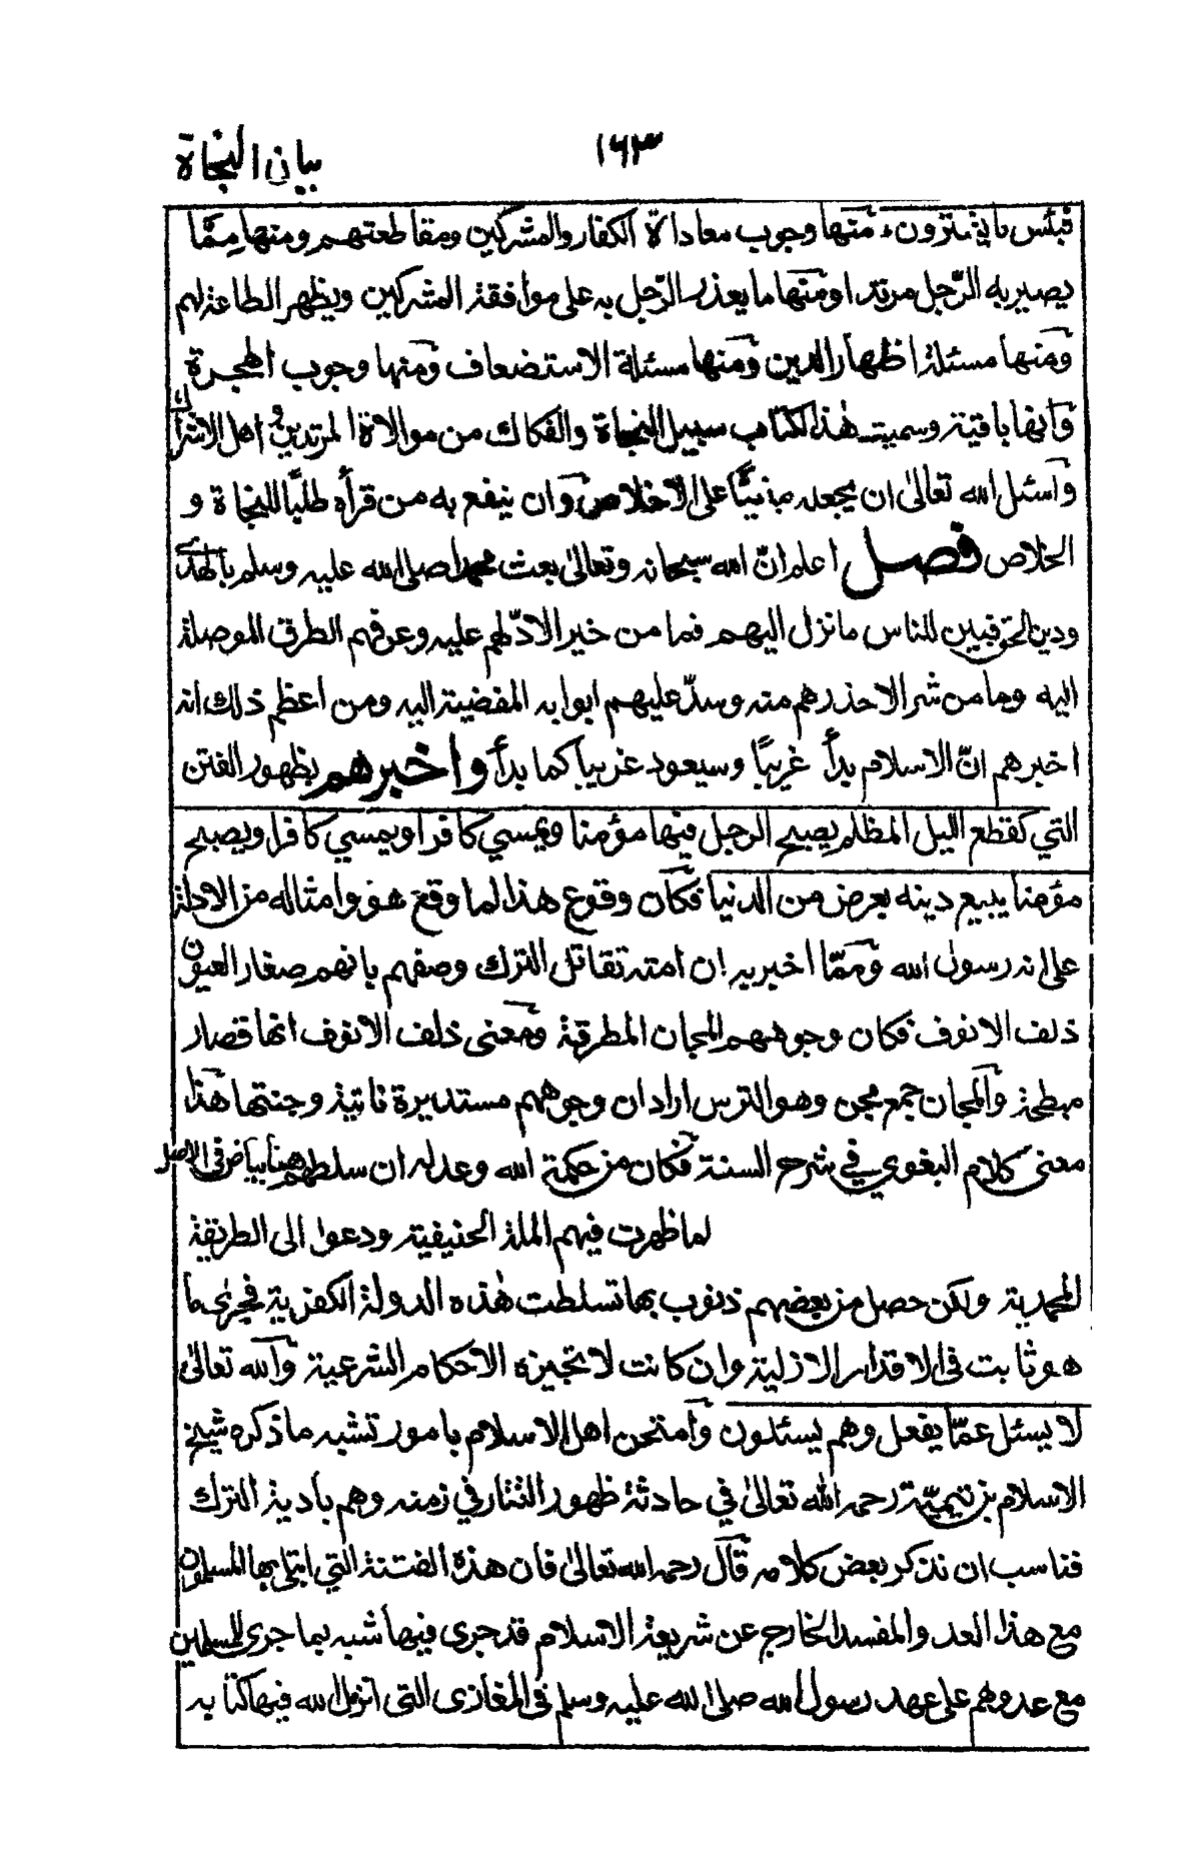 ١٦٣
بيان النجاة
فبئس ما يشترون، منها وجوب معاداة الكفار والمشركين ومقاطعتهم ومنها ممّا
يصير به الرّجل مرتدا ومنها ما يعذر الرّجل به على موافقة المشركين ويظهر الطاعة لهم
ومنها مسئلة اظهار الدين ومنها مسئلة الاستضعاف ومنها وجوب الهجرة
وانها باقية وسميت هٰذا الكتاب سبيل النجاة والفكاك من موالاة المرتدين و اهل الاشراك
وأسئل الله تعالىٰ ان يجعله مبنيًّا على الاخلاص وان ينفع به من قرأه طلبًا للنجاة و
الخلاص فصل اعلم انّ الله سبحانه وتعالىٰ بعث محمدا صلى الله عليه وسلم بالهدى
ودين الحق فبين للناس ما نزل اليهم فما من خير الا دّلهم عليه وعرفهم الطرق الموصلة
اليه وما من شر الا حذرهم منه وسدّ عليهم ابوابه المفضية اليه ومن اعظم ذلك انه
اخبرهم انّ الاسلام بدأ غريبًا وسيعود غريبا كما بدأ واخبرهم بظهور الفتن
التي كقطع الليل المظلم يصبح الرجل فيها مؤمنا ويمسي كافرا ويمسي كافرا ويصبح
مؤمنا يبيع دينه بعرض من الدنيا فكان وقوع هذا لما وقع هو وامثاله من الادلة
على انه رسول الله وممّا اخبر به ان امته تقاتل الترك وصفهم بانهم صغار العيون
ذلف الانوف فكان وجوههم المجان المطرقة ومعنى ذلف الانوف انها قصار
مبطحة والمجان جمع مجن وهو الترس اراد ان وجوههم مستديرة ناتية وجنتها هذا
معنى كلام البغوي في شرح السنة فكان من حكمة الله وعدله ان سلطهم هنا بياض فى الاصل
لما ظهرت فيهم الملة الحنيفية ودعوا الى الطريقة
المحمدية ولكن حصل من بعضهم ذنوب بها تسلطت هٰذه الدولة الكفرية فجرىٰ ما
هو ثابت فى الاقدار الازلية وان كانت لا تجيزه الاحكام الشرعية والله تعالىٰ
لا يسئل عمّا يفعل وهم يسئلون وامتحن اهل الاسلام بامور تشبه ما ذكره شيخ
الاسلام بن تيميّة رحمه الله تعالىٰ في حادثة ظهور التتار في زمنه وهم بادية الترك
فناسب ان نذكر بعض كلامه قال رحمه الله تعالىٰ فان هذه الفتنة التي ابتلي بها المسلمون
مع هذا العدو المفسد الخارج عن شريعة الاسلام قد جرى فيها شبه بما جرى للمسلمين
مع عدوهم على عهد رسول الله صلى الله عليه وسلم فى المغازى التى انزل الله فيها كتابه